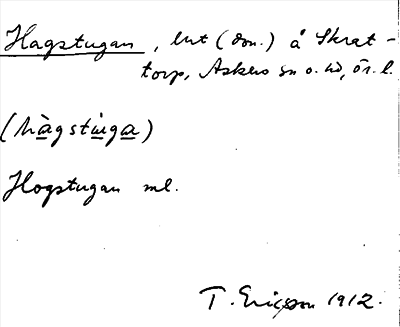 Hagstugan, lht (don.) å Skrat-
torp, Askers sn o. hd, ör. l.
(hàgstùga)
Hogstugan ml.
T. Ericsson 1912.